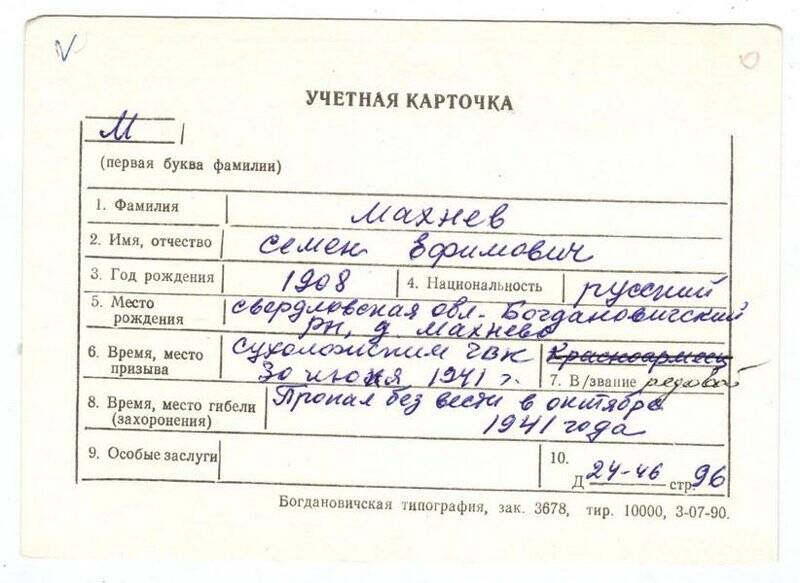 УЧЕТНАЯ КАРТОЧКА
М
(первая буква фамилии)
1. Фамилия Махнев
2. Имя, отчество Семен Ефимович
3. Год рождения 1908 4. Национальность русский
5. Место рождения Свердловская обл. Богдановичский
рн, д. Махнево
6. Время, место призыва Сухоложским ГВК
30 июня 1941 г.
Красноармеец
7. В/звание рядовой
8. Время, место гибели (захоронения) Пропал без вести в октябре
1941 года
9. Особые заслуги
10.
Д 24-46 стр. 96
Богдановичская типография, зак. 3678, тир. 10000, 3-07-90.